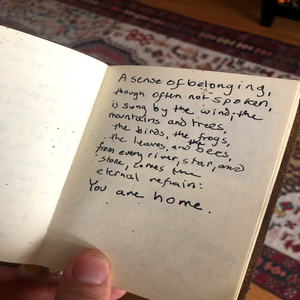 A sense of belonging,
though often not spoken,
is sung by the wind, the
mountains and trees,
the birds, the frogs,
the leaves, and the bees,
from every river, star, and
stone, comes the
eternal refrain:
You are home.